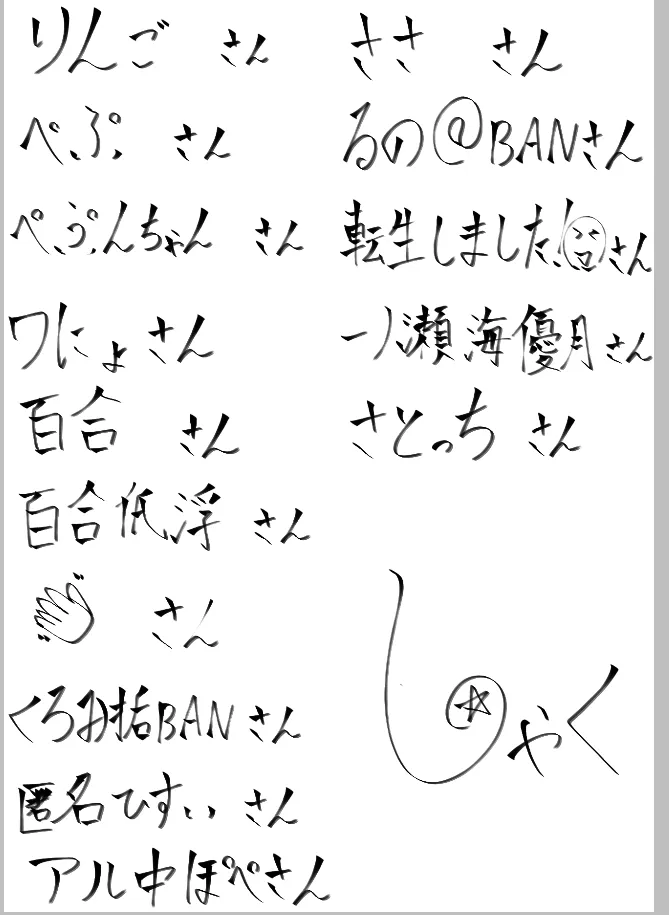 りんご さん
ぺ、ぷ さん
ぺ、ぷんちゃん さん
ワにょ さん
百合 さん
百合低浮 さん
👋 さん
くろみ垢BAN さん
匿名ひすい さん
アル中ぽぺさん
ささ さん
るの@BANさん
転生しました!さん
一ノ瀬海優月さん
さとっち さん
しゃく